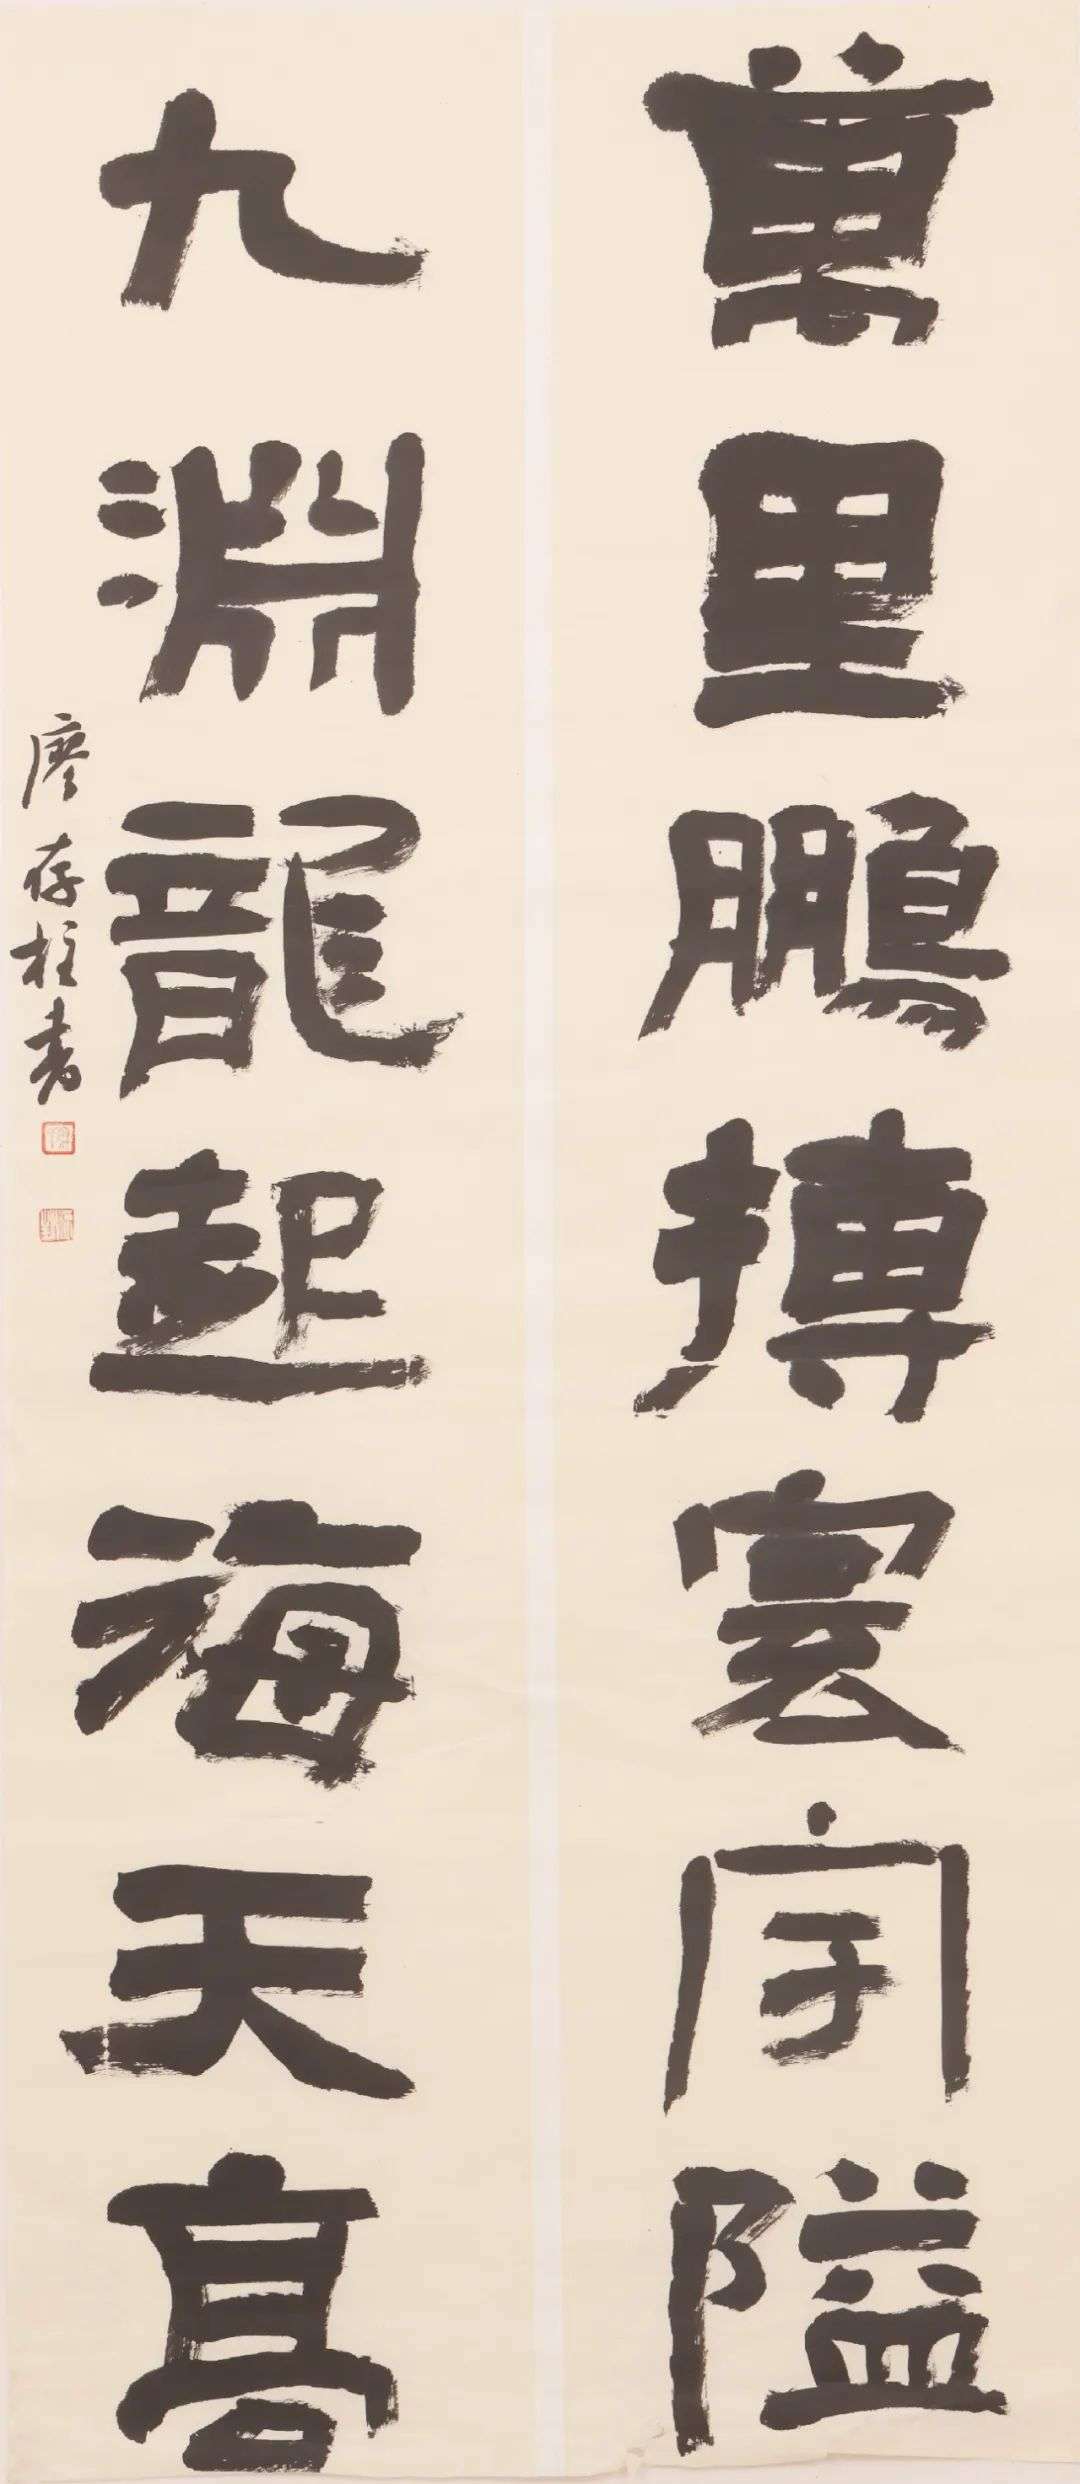 萬里鵬搏雲宇隘
九淵龍起海天高
廖存柱書